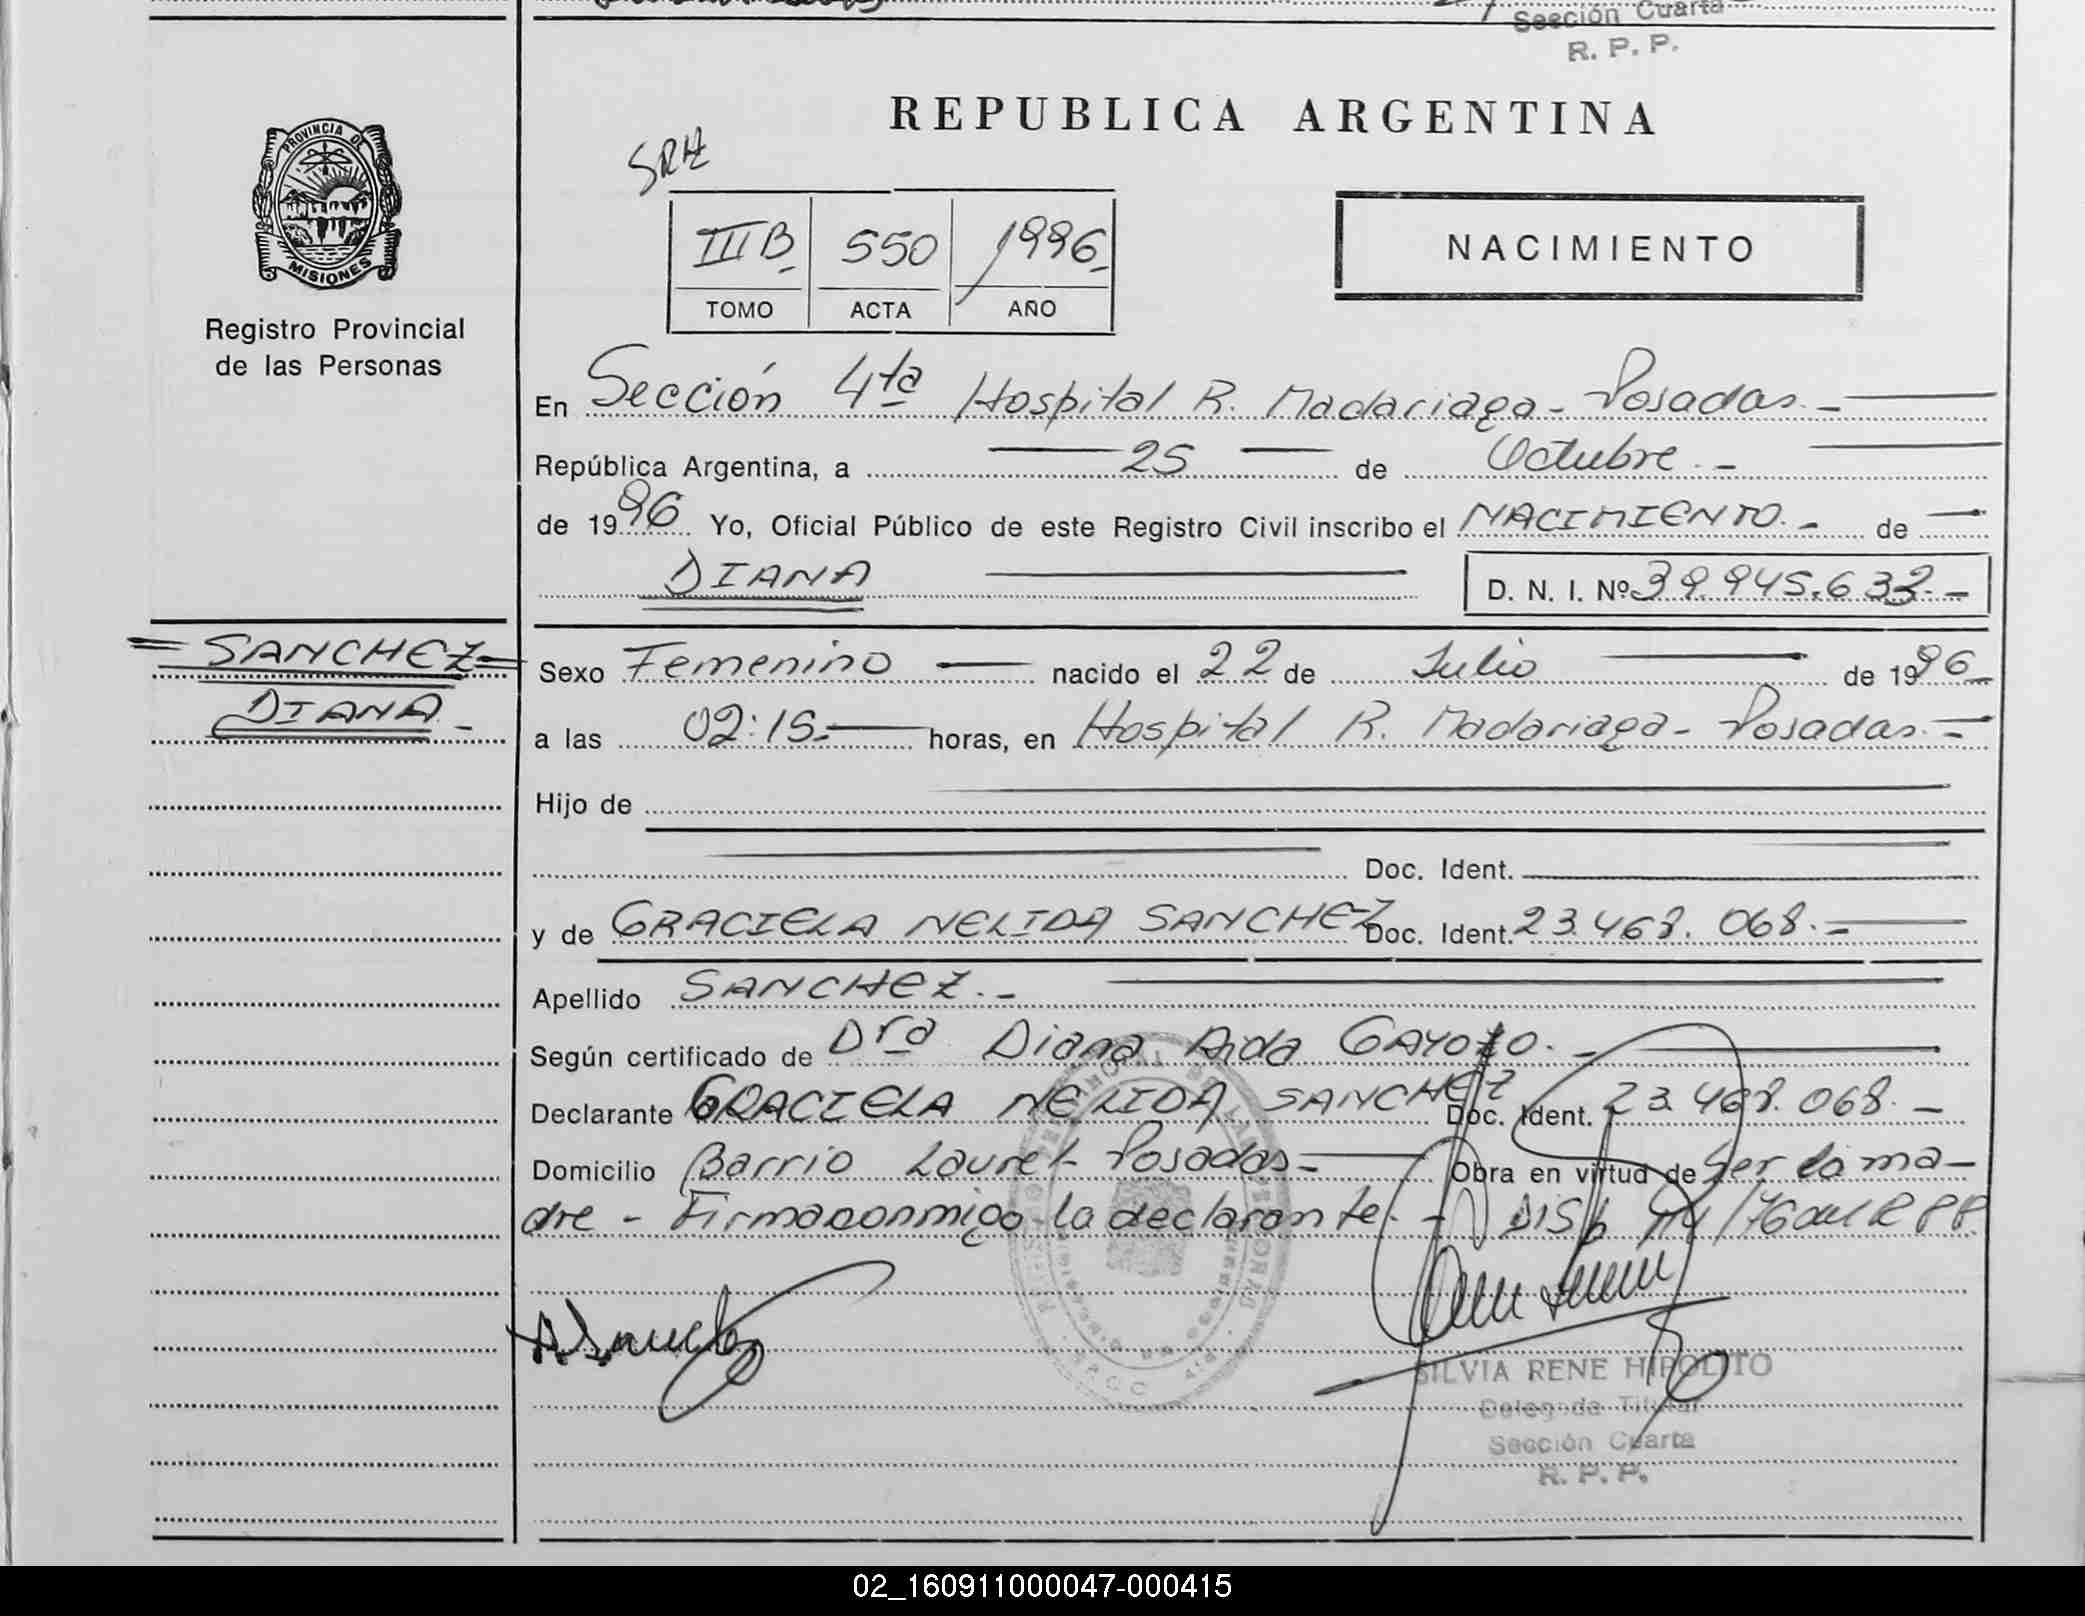 Sección Cuarta
R. P. P.
REPUBLICA ARGENTINA
SRH
PROVINCIA DE
MISIONES
Registro Provincial
de las Personas
IIIB 550 1996
TOMO ACTA AÑO
NACIMIENTO
En Sección 4ta Hospital R. Madariaga - Posadas. -
República Argentina, a 25 de Octubre. -
de 1996 Yo, Oficial Público de este Registro Civil inscribo el NACIMIENTO. - de
DIANA D. N. I. Nº 39.945.632. -
= SANCHEZ =
DIANA. -
Sexo Femenino nacido el 22 de Julio de 1996 -
a las 02:15. horas, en Hospital R. Madariaga - Posadas. -
Hijo de
Doc. Ident.
y de GRACIELA NELIDA SANCHEZ Doc. Ident. 23.468.068. -
Apellido SANCHEZ. -
Según certificado de Dra Diana Aida GAYOZO. -
Declarante GRACIELA NELIDA SANCHEZ Doc. Ident. 23.468.068. -
Domicilio Barrio Laurel - Posadas - Obra en virtud de ser la ma-
dre - Firma conmigo la declarante. - DISP /76 del R P P.
SILVIA RENE HIPOLITO
Delegada Titular
Sección Cuarta
R. P. P.
02_160911000047-000415